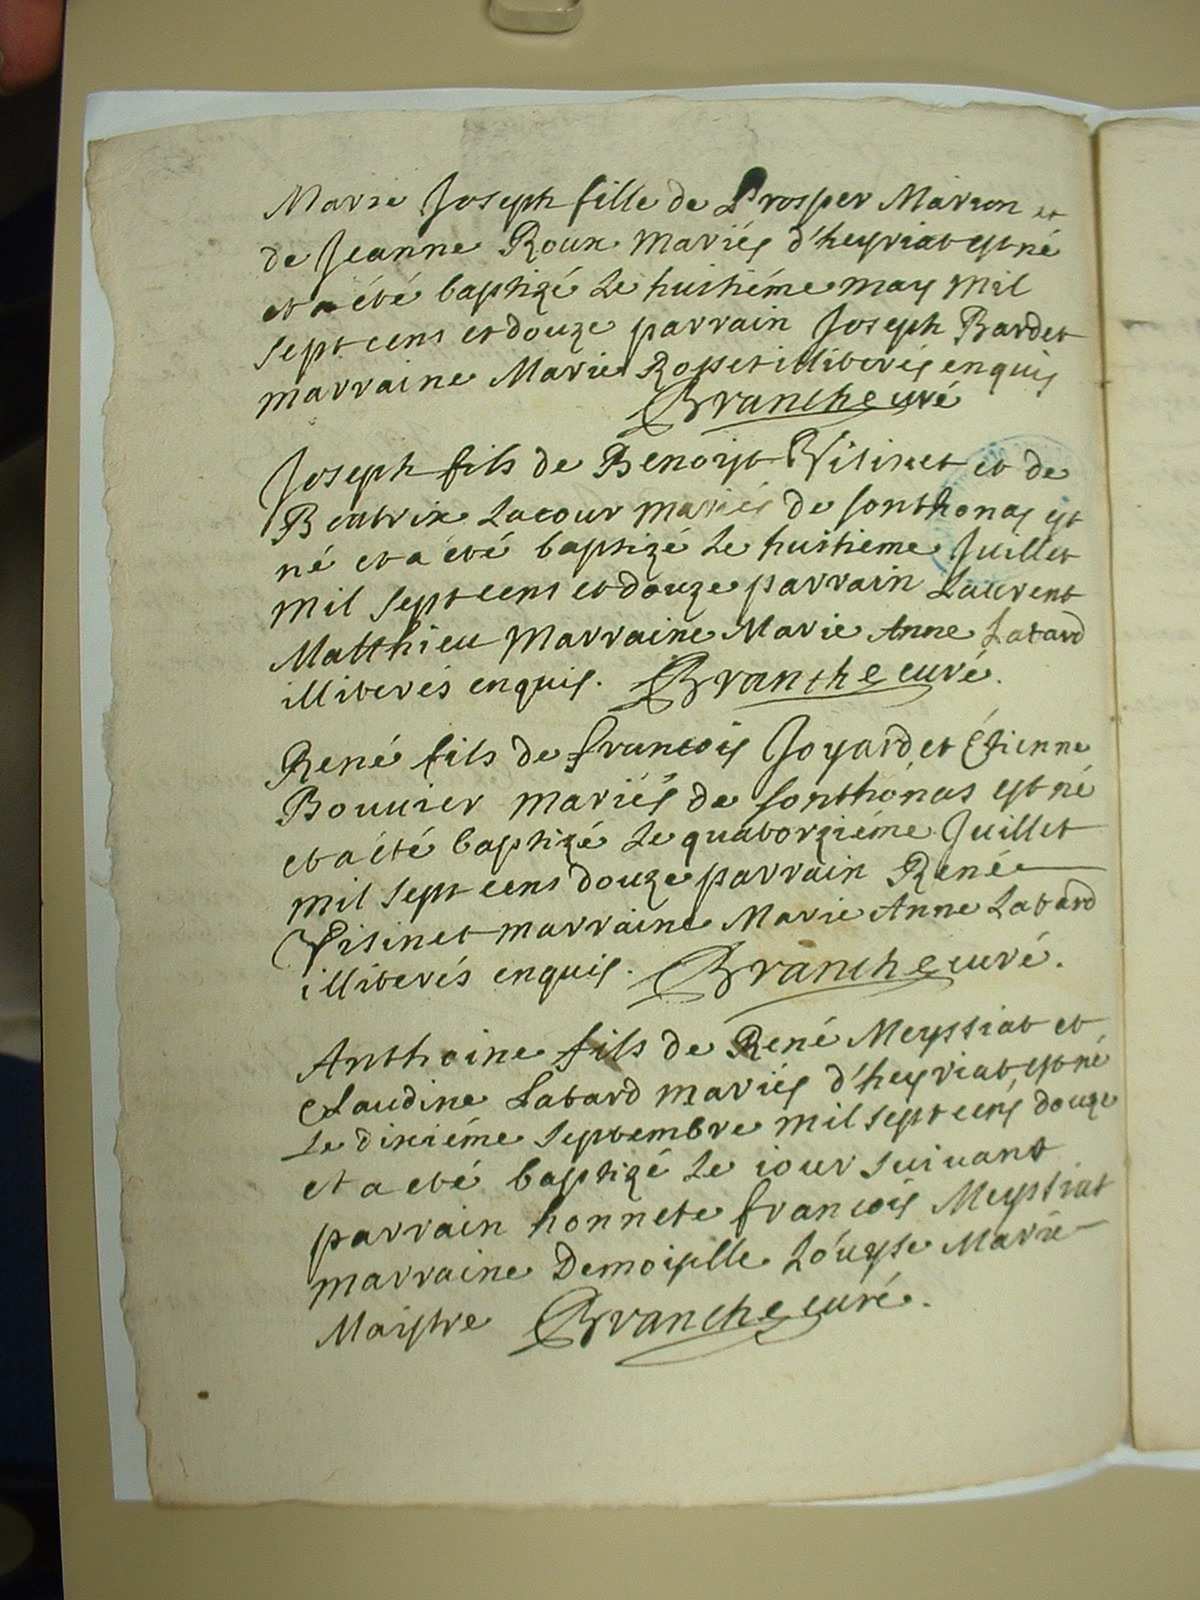 Marie Joseph fille de Prosper Marion et
de Jeanne Roux mariés d'heyriat est né
et a été baptizé le huitiéme may mil
sept cens et douze parrain Joseph Bardet
marraine Marie Rosset illiterés enquis
Branche curé
Joseph fils de Benoist Visinet et de
Beatrix Lacour mariés de sonthonas est
né et a été baptizé le huitieme Juillet
mil sept cens et douze parrain Laurent
Matthieu marraine Marie Anne Latard
illiterés enquis. Branche curé.
René fils de francois Joyard et Étienne
Bouvier mariés de sonthónas est né
et a été baptizé le quatorziéme Juillet
mil sept cens douze parrain René
Visinet marraine Marie Anne Latard
illiterés enquis. Branche curé.
Anthoine fils de René Meyssiat et
Claudine Latard mariés d'heyriat, est né
le dixiéme septembre mil sept cens douze
et a eté baptizé le iour suivant
parrain honnete francois Meyssiat
marraine Demoiselle Loüyse Marie
Maistre Branche curé.